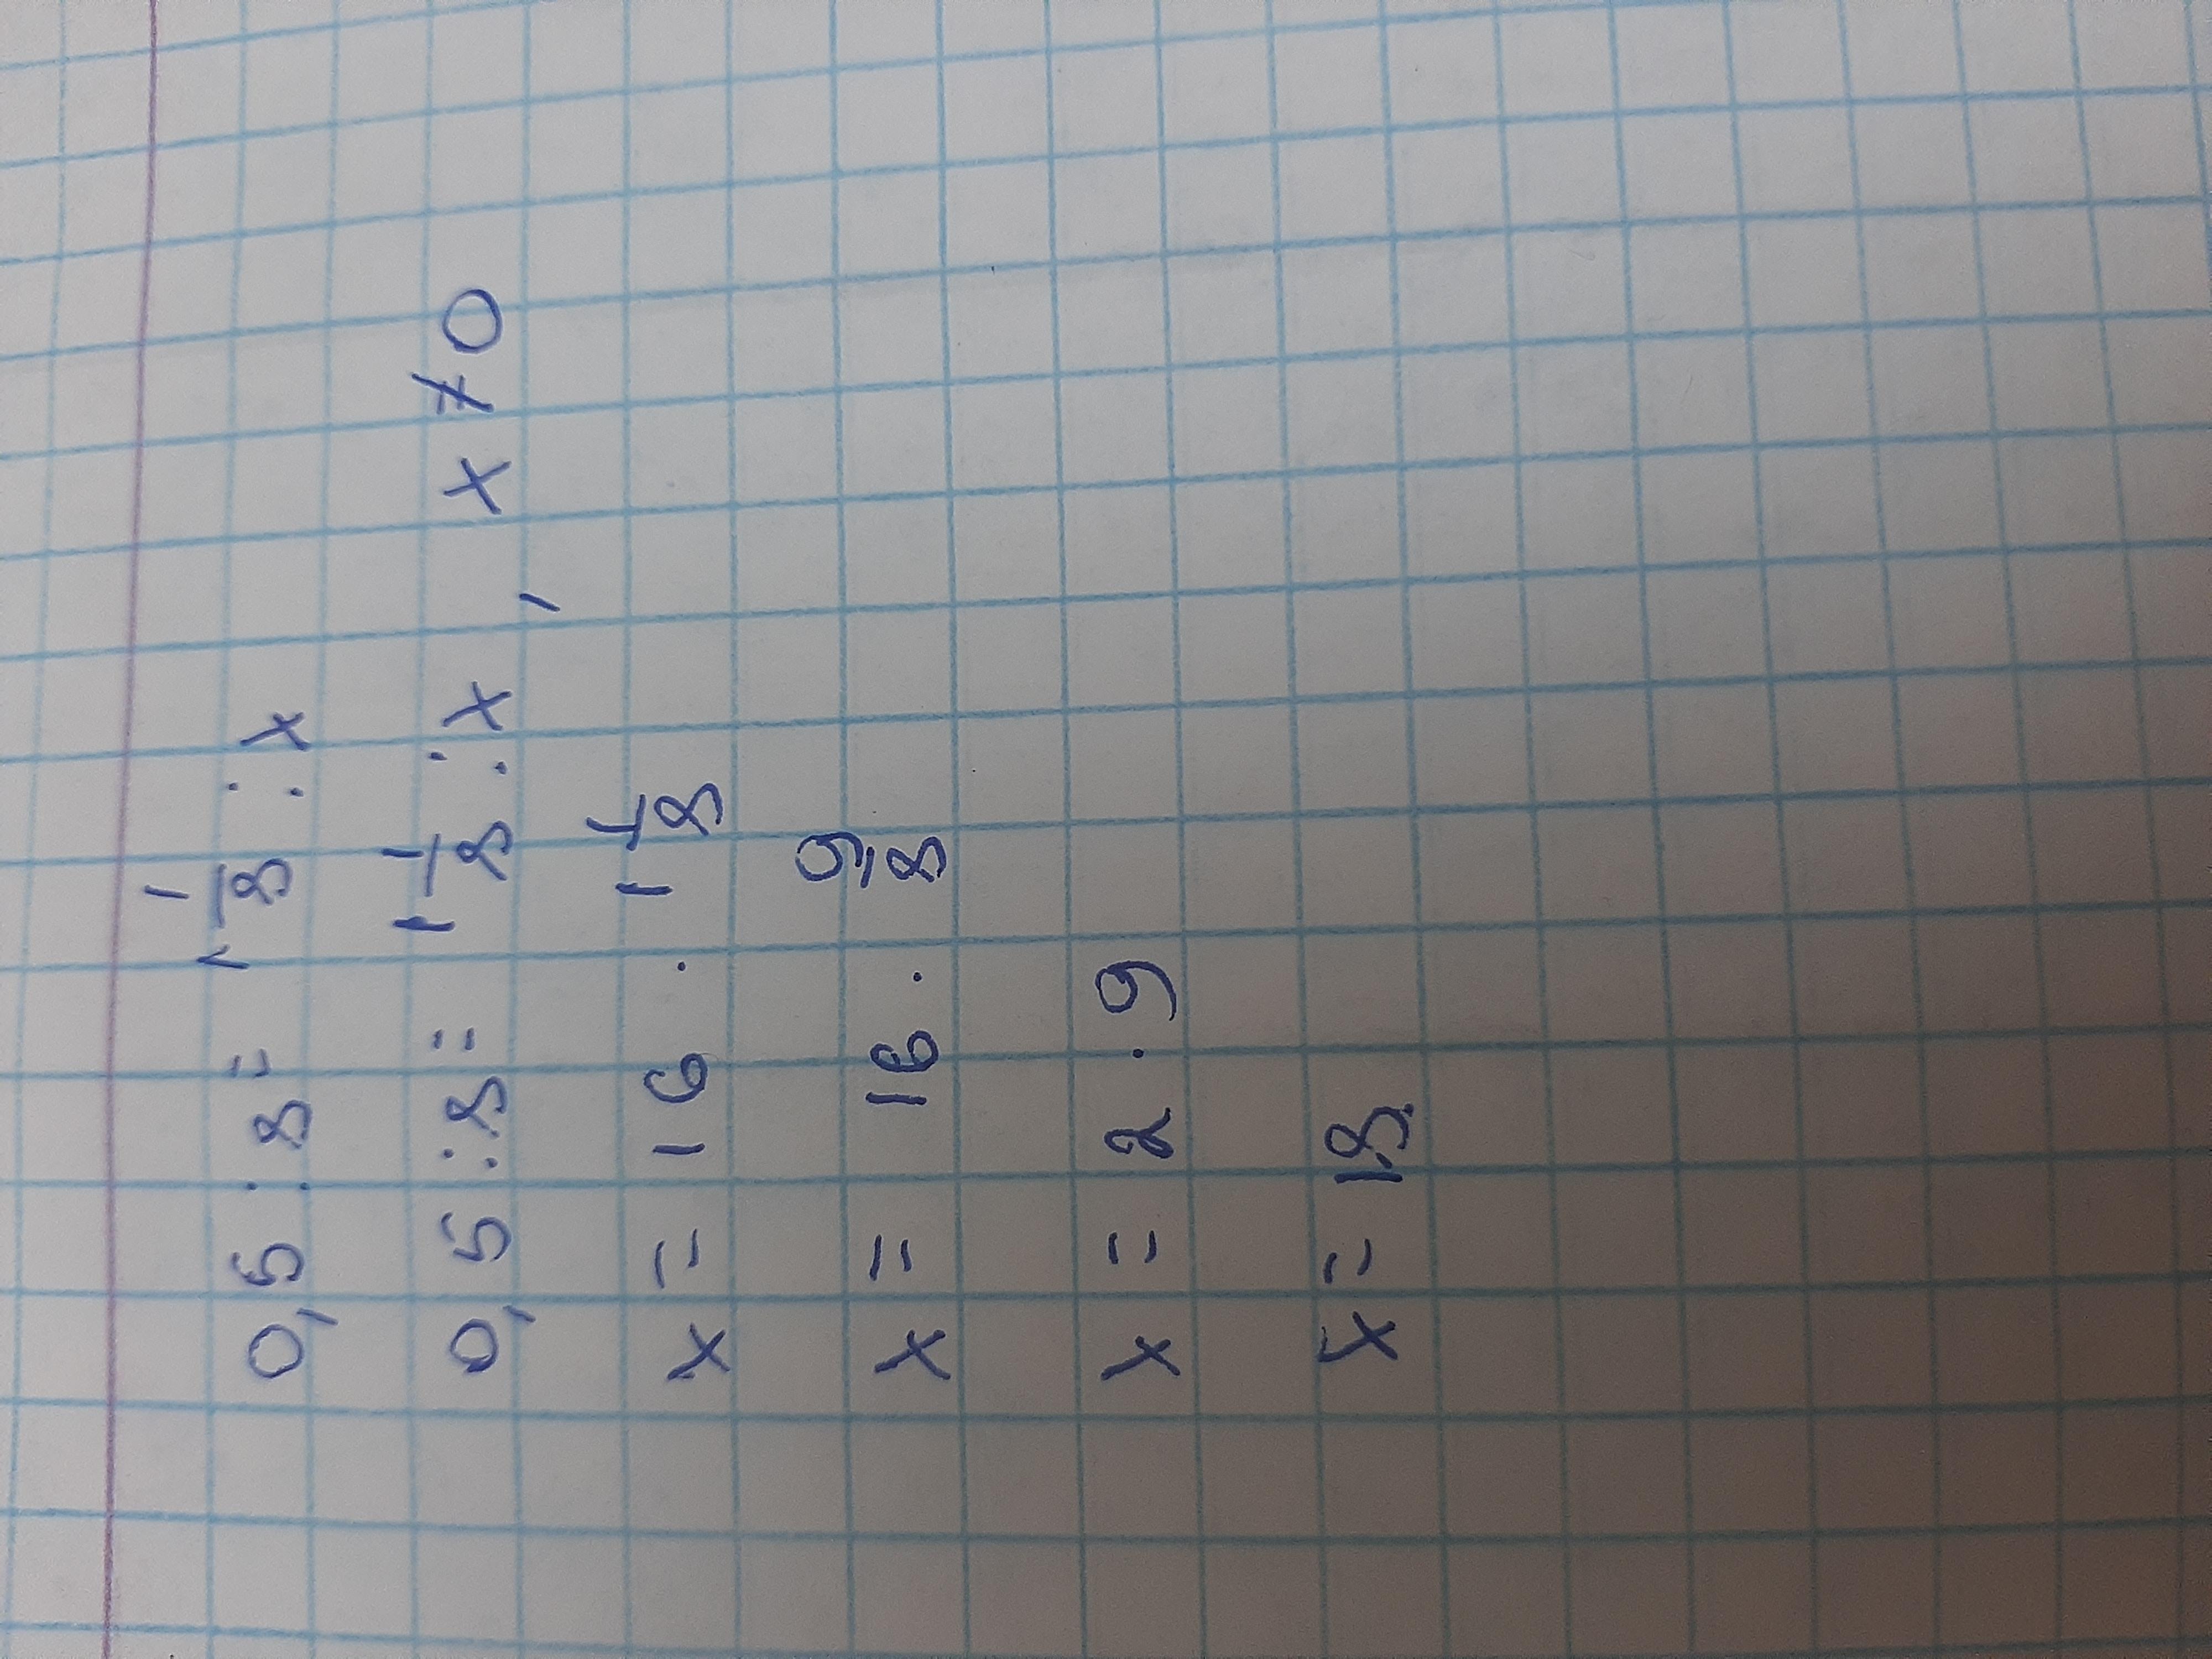 0,5 : 8 = 1 1/8 : x
0,5 : 8 = 1 1/8 : x, x ≠ 0
x = 16 · 1 1/8
x = 16 · 9/8
x = 2 · 9
x = 18